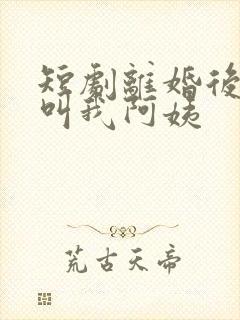 短劇離婚後
叫我阿姨
荒古天帝